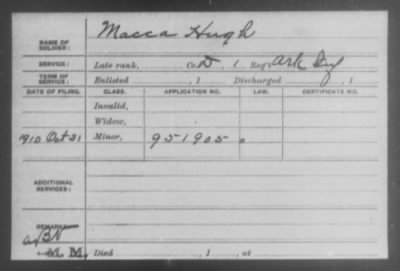 NAME OF SOLDIER: Macca Hugh
SERVICE: Late rank, Co. D, 1 Reg't Ark Inf
TERM OF SERVICE: Enlisted , 1 Discharged , 1
DATE OF FILING. CLASS. APPLICATION NO. LAW. CERTIFICATE NO.
Invalid,
Widow,
1910 Oct 31 Minor, 951905
ADDITIONAL SERVICES:
REMARKS:
M. M. Died , 1 , at